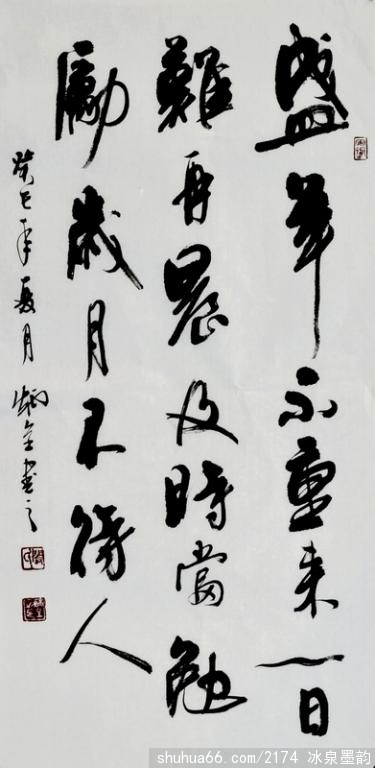 盛年不重来一日
難再晨及時當勉
勵歲月不待人
癸巳年夏月炳全書之
shuhua66.com/2174 冰泉墨韵